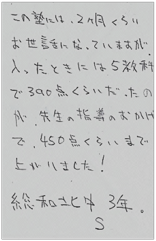 この塾には、2ヶ月くらい
お世話になっていますが、
入ったときには5教科
で390点くらいだったの
が、先生の指導のおかげ
で、450点くらいまで
上がりました!
総和北中 3年。
S